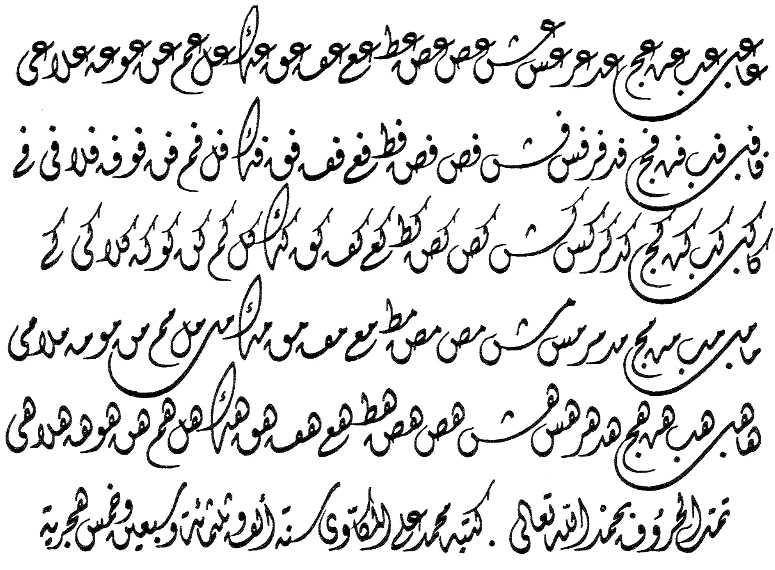 عا عبى عب عن عج عد عر عس عش عص عص عط عع عف عق عك عل عم عن عو عه علا عى
فا فبى فب فن فج فد فر فس فش فص فص فط فع فف فق فك فل فم فن فو فه فلا فى فے
كا كبى كب كن كج كد كر كس كش كص كص كط كع كف كق كك كل كم كن كو كه كلا كى كے
ما مبى مب من مج مد مر مس مش مص مص مط مع مف مق مك مى مل مم من مو مه ملا مى
ها هبى هب هن هج هد هر هس هش هص هص هط هع هف هق هك هل هم هن هو هه هلا هى
تمت الحروف بحمد الله تعالى . كتبه محمد على المكاوى سنة ألف وثلثمائة وسبعين وخمس هجرية